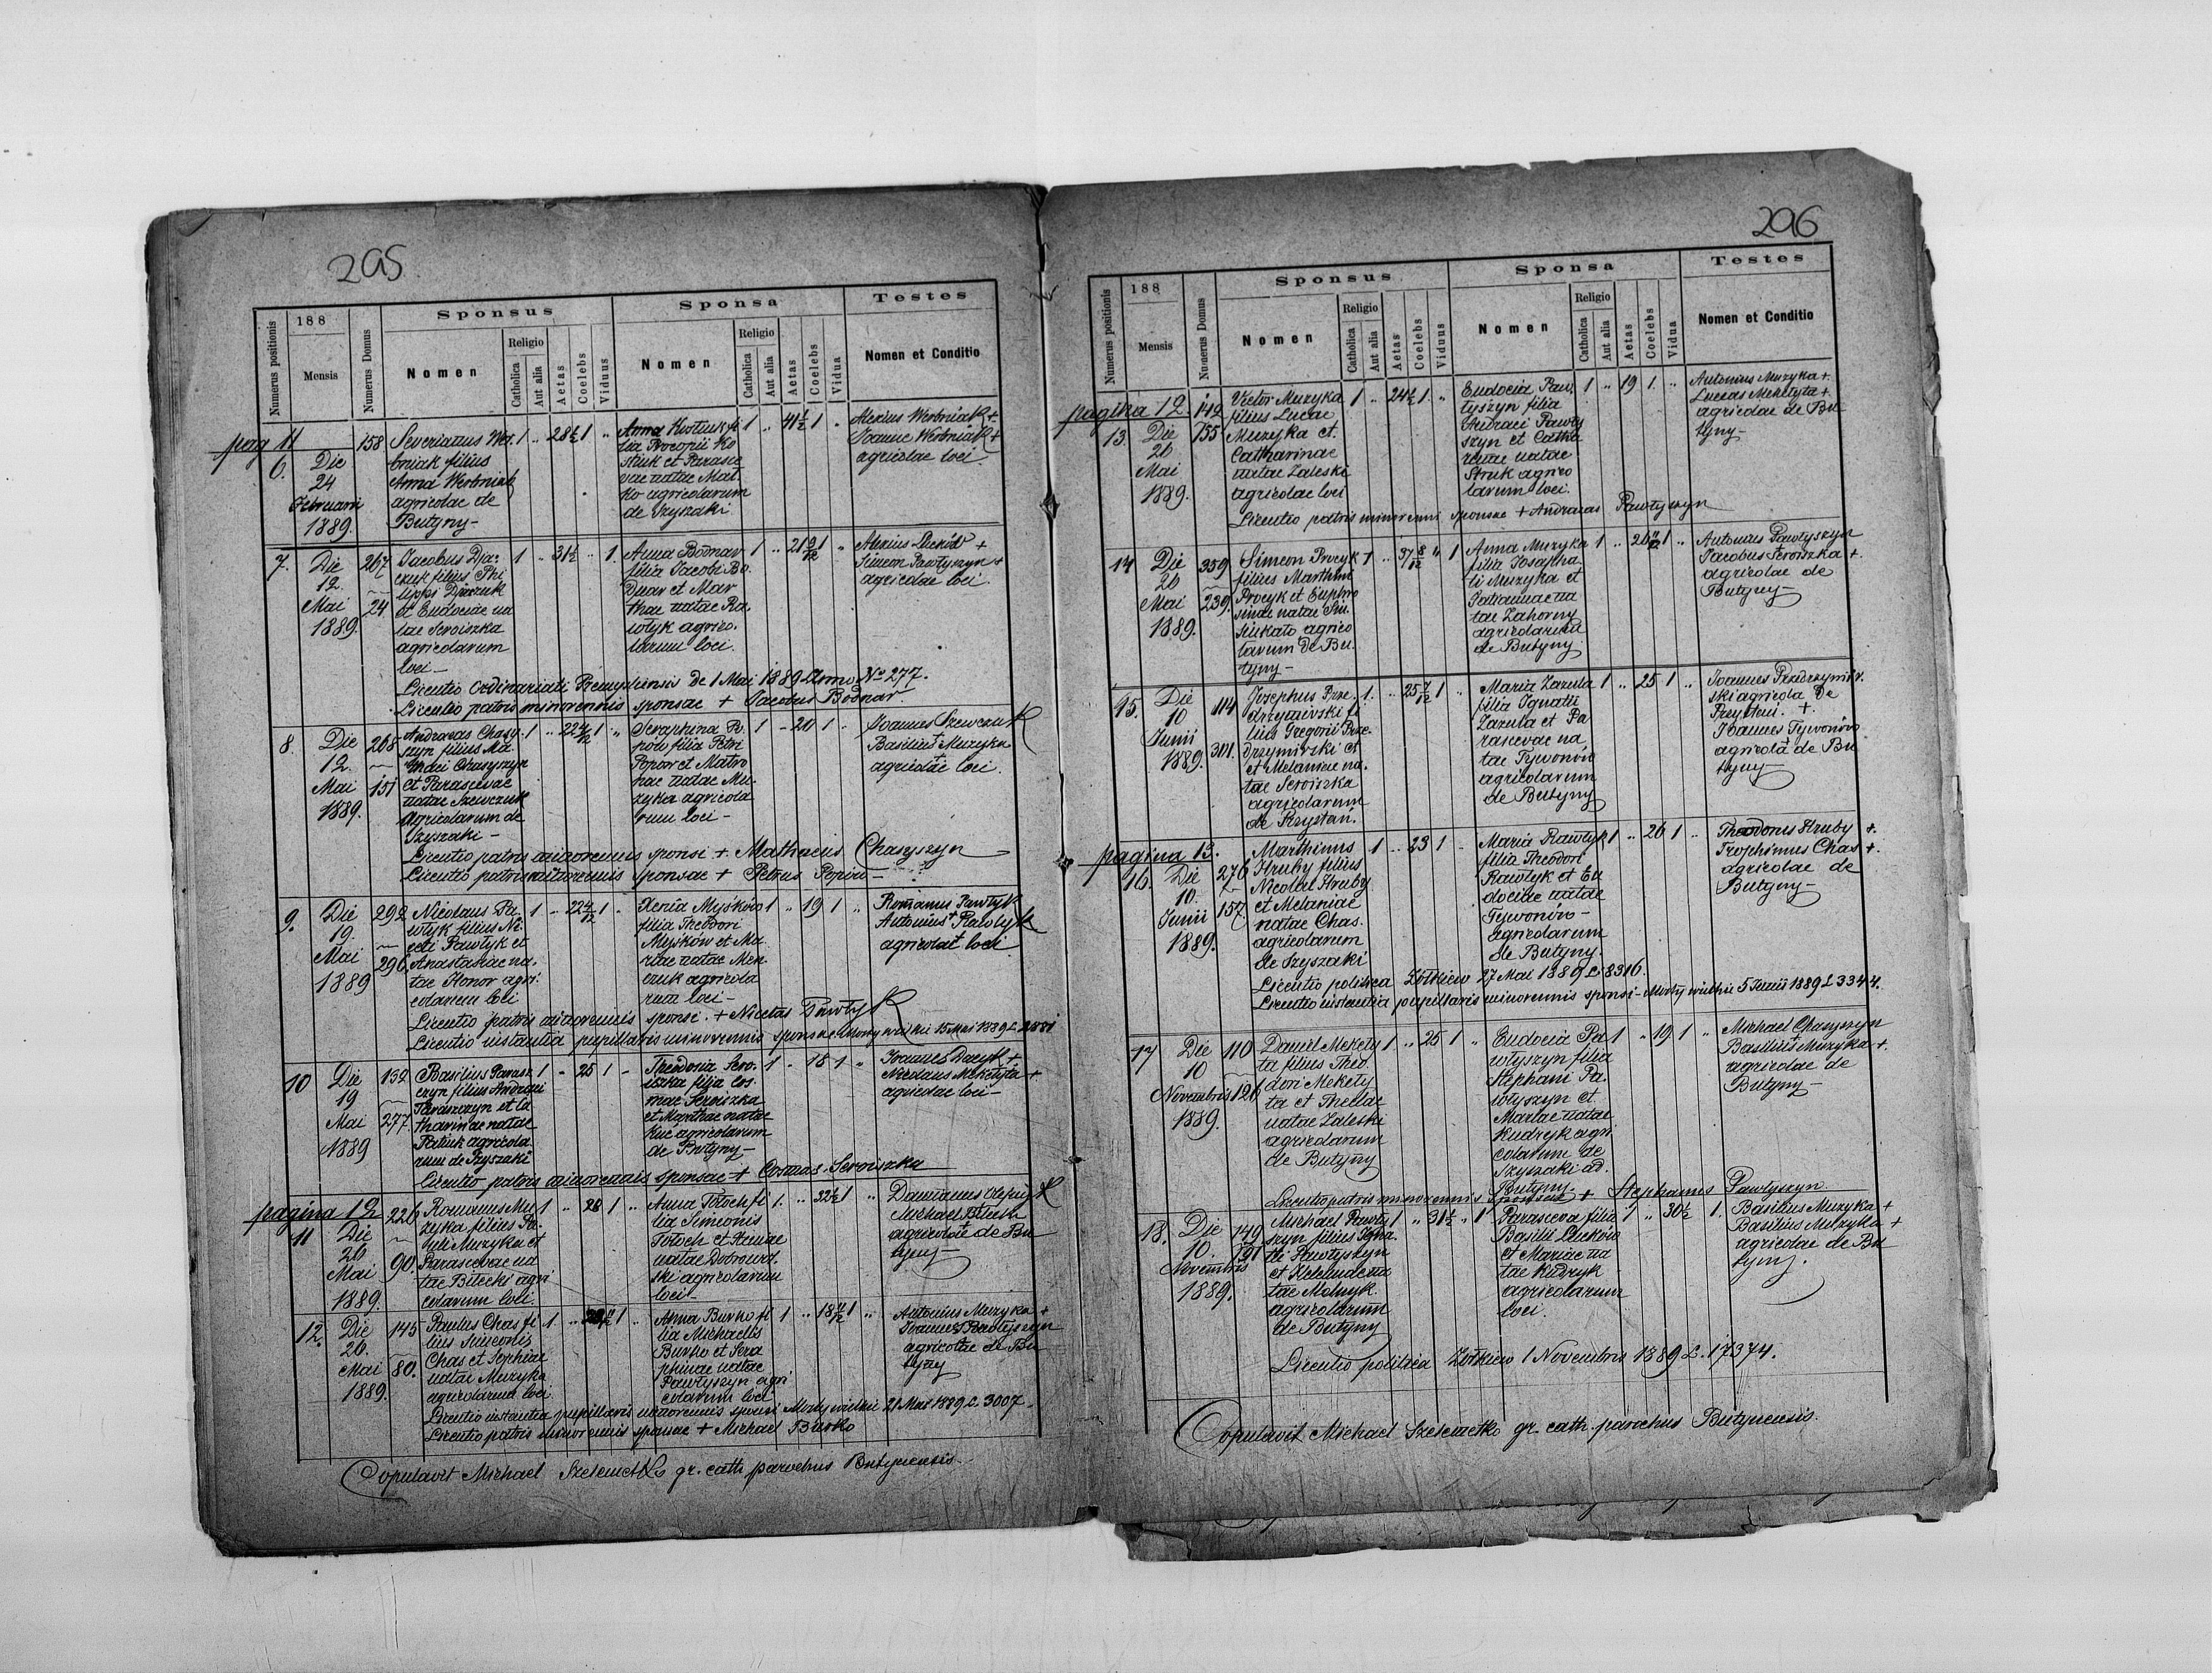 295.
Numerus positionis
188
Mensis
Numerus Domus
Sponsus
Nomen
Religio
Catholica
Aut alia
Aetas
Coelebs
Viduus
Sponsa
Nomen
Religio
Catholica
Aut alia
Aetas
Coelebs
Vidua
Testes
Nomen et Conditio
pag 11
6. Die 24 Februarii 1889.
158
Severianus Wer-
bniak filius
Anna Werbniak
agricolae de
Butyny-
1 „ 28½ 1 „
Anna Kostiuk fi
lia Procopii Ko
stiuk et Parasce
vae natae Mal-
ko agricolarum
de Przyszaki
1 „ 41½ 1 „
Alexius Werbniak +
Joannes Werbniak +
agricolae loci.
7. Die 12. Mai 1889.
267
24
Jacobus Djac-
zuk filius Phi
lippi Djaczuk
et Eudociae na
tae Seroiszka
agricolarum
loci-
1 „ 31½ „ 1.
Anna Bodnar
filia Jacobi Bo
dnar et Mar
thae natae Pa-
włyk agrico-
larum loci.
1 „ 21 9/12 1 „
Simeon Pawłyszyn +
agricolae loci
Licentio Ordinariati Premysliensis de 1 Mai 1889 Anno No 277.
Licentio patris minorennis sponsae + Jacobus Bodnar.
8. Die 12. Mai 1889.
268
151
Andraeas Chasy-
szyn filius Ma
thaei Chasyszyn
et Parascevae
natae Szewczuk
Agricolarum de
Przyszaki -
1 „ 22 4/12 1 „
Seraphina Po-
pow filia Petri
Popow et Matro
nae natae Mu-
zyka agricola
rum loci -
1 „ 20 1 „
Joannes Szewczuk
Basilius Muzyka
agricolae loci.
Licentio patris minorennis sponsi + Mathaeus Chasyszyn
Licentio patris minorennis sponsae + Petrus Popow-
9. Die 19. Mai 1889
292
296
Nicolaus Pa-
włyk filius Ni-
ceti Pawłyk et
Anastasiae na-
tae Honor agri-
colarum loci
1 „ 22 4/12 1 „
Xenia Myśków
filia Theodori
Myśków et Ma-
riae natae Men-
czuk agricola
rum loci -
1 „ 19 1 „
Romanus Pawłyk
Antonius Pawłyk
agricolae loci
Licentio patris minorennis sponsi. + Nicetas Pawłyk
Licentio instantia pupillaris minorennis sponsae Mosty wielkie 15 Mai 1889 L.
10 Die 19 Mai 1889
132
277.
Basilius Parasz-
czyn filius Andraei
Paraszczyn et Ca
tharinae natae
agricola-
rum de Przyszaki
1 „ 25 1 „
Theodosia Sero-
iszka filia Cos-
mae Seroiszka
et Marthae natae
Kuc agricolarum
de Butyny -
1 „ 18 1 „
Joannes Dacyk +
Nicolaus Mekełyta +
agricolae loci -
Licentio patris minorennis sponsae + Cosmas Seroiszka
pagina 12
11 Die 20 Mai 1889.
226
90
Romanus Mu
zyka filius Pa-
uli Muzyka et
Parascevae na
tae Bilecki agri
colarum loci.
1 „ 28 1 „
Anna Toroch fi
lia Simeonis
Toroch et Xeniae
natae Dobrowol-
ski agricolarum
loci -
1. „ 32½ 1 „
agricolae de Bu
tyny -
12. Die 26. Mai 1889.
145
80.
Paulus Chas fi
lius Simeonis
Chas et Sophiae
natae Muzyka
agricolarum loci
Anna Burko fi
lia Michaelis
Burko et Sera
phinae natae
Pawłyszyn agri
colarum loci
1 „ 18 1 „
Antonius Muzyka +
Joannes Pawłyszyn
agricolae de Bu
tyny
Licentio instantia pupillaris minorennis sponsi Mosty wielkie 21 Mai 1889 L. 3007.
Licentio patris minorennis sponsae + Michael Burko
Copulavit Michael Szelemetko gr. cath. parochus Butynensis.
296
Numerus positionis
188
Mensis
Nuonerus Domus
Sponsus
Nomen
Religio
Catholica
Aut alia
Aetas
Coelebs
Viduus
Sponsa
Nomen
Religio
Catholica
Aut alia
Aetas
Coelebs
Vidua
Testes
Nomen et Conditio
pagina 12.
13. Die 26 Mai 1889.
142
155
Victor Muzyka
filius Lucae
Muzyka et
Catharinae
natae Zaleski
agricolae loci
1 „ 24½ 1. „
Eudocia Paw-
łyszyn filia
Andraei Pawły
szyn et Catha
rinae natae
Struk agrico
larum loci.
1 „ 19 1. „
Antonius Muzyka +.
Lucas Mekełyta +
agricolae de Bu
tyny-
Licentio patris minorenni sponsae + Andraeas Pawłyszyn
14 Die 26 Mai 1889.
359
239.
Simeon Procyk
filius Marthini
Procyk et Euphro
sinae natae
agrico
larum de Bu-
tyny-
1 „ 37 8/12 „ 1
Anna Muzyka
filia Josapha-
ti Muzyka et
Tatianae na
tae Zahorny
agricolarum
de Butyny
Antonius Pawłyszyn
Jacobus Seroiszka +.
agricolae de
Butyny -
15. Die 10 Junii 1889.
114
301.
Josephus Prze-
drzymirski fi
lius Gregorii Prze-
drzymirski et
et Melaniae na-
tae Seroiszka
agricolarum
de Przystań.
1. „ 25 7/12 1 „
Maria Zazula
filia Ignatii
Zazula et Pa
rascevae na
tae Tywonów
agricolarum
de Butyny
1 „ 25 1 „
Joannes Przedrzymir-
ski agricola de
Przystań. +.
Joannes Tywonów
agricola de Bu
tyny-
pagina 13.
16. Die 10. Junii 1889.
276
157
Marthinus
Hruby filius
Nicolai Hruby
et Melaniae
natae Chas.
agricolarum
de Przyszaki
1 „ 23 1 „
Maria Pawłyk
filia Theodori
Pawłyk et Eu
dociae natae
Tywonów-
agricolarum
de Butyny.
1 „ 26 1 „
Theodorus Hruby +.
Trophimus Chas +.
agricolae de
Butyny -
Licentio politica Żółkiew 27 Mai 1889 L. 8316.
Licentio instantia pupillaris minorennis sponsi - Mosty wielkie 5 Junii 1889 L 3344.
17 Die 10 Novembris 1889.
110
126
Daniel Mekeły
ta filius Theo-
dori Mekeły
ta et Theclae
natae Zaleski
agricolarum
de Butyny
1 „ 25 1 „
Eudocia Pa
włyszyn filia
Stephani Pa-
włyszyn et
Mariae natae
Kudryk agri
colarum de
Przyszaki ad.
Butyny.
1 „ 19 1 „
Michael Chasyszyn
Basilius Muzyka +.
agricolae de
Butyny -
Licentio patris minorennis sponsae + Stephanus Pawłyszyn
18. Die 10. Novembris 1889.
149
191
Michael Pawły
szyn filius Igna-
tii Pawłyszyn
et Helenae na
tae Melnyk.
agricolarum
de Butyny
1 „ 31½ „ 1
Parasceva filia
Basilii Łucków
et Mariae na
tae Kudryk -
agricolarum
loci.
1 „ 30½ „ 1.
Basilius Muzyka +
Basilius Muzyka +
agricolae de Bu
tyny.
Licentio politica Żółkiew 1 Novembris 1889 L. 17374.
Copulavit Michael Szelemetko gr. cath. parochus Butynensis.